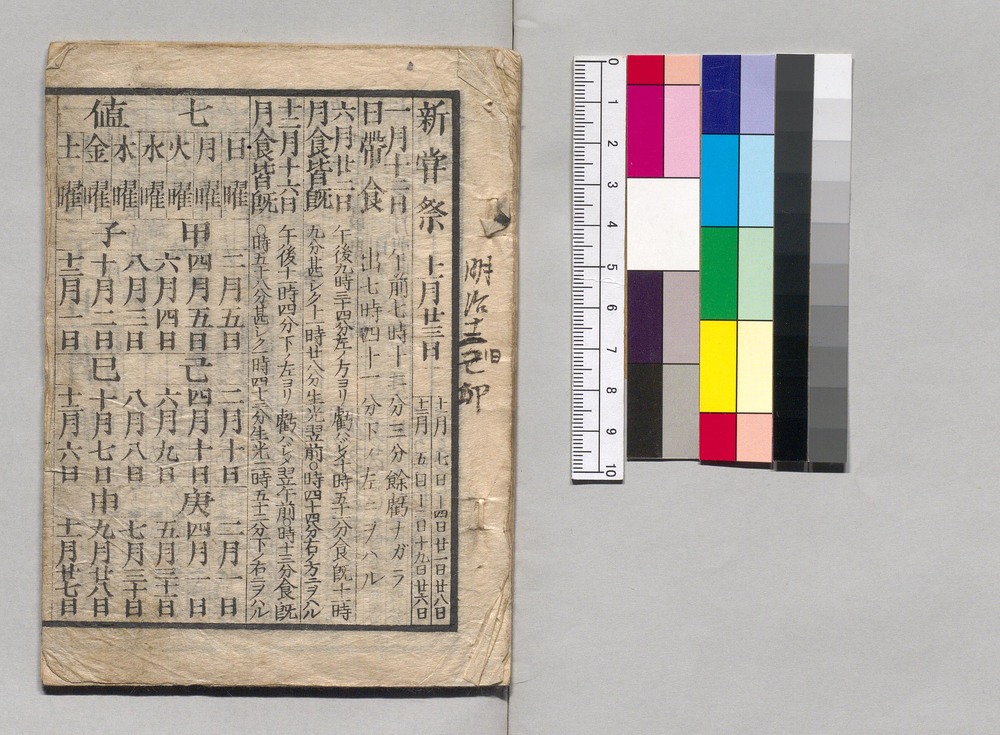 明治十二己卯
旧
新嘗祭 十一月廿三日
十月 七日 十四日 廿一日 廿八日
十二月 五日 十二日 十九日 廿六日
一月廿二日 午前七時十二分三分餘虧ナガラ
日帶食 出七時四十一分下ノ左ニヲハル
六月廿二日 午後九時三十四分左ノ方ヨリ虧ハジメ十時五十分食既十一時
月食皆既 九分甚シク十一時廿八分生光翌前〇時四十四分右ノ方ニヲハル
十二月十六日 午後十一時四分下ノ左ヨリ虧ハジメ翌午前〇時十三分食既
月食皆既 〇時五十八分甚シク一時四十三分生光二時五十二分下ノ右ニヲハル
七値
日曜
月曜
火曜
水曜
木曜
金曜
土曜
甲子
二月五日
四月五日
六月四日
八月三日
十月二日
十二月一日
己巳
二月十日
四月十日
六月九日
八月八日
十月七日
十二月六日
庚申
二月一日
四月一日
五月三十一日
七月三十日
九月廿八日
十一月廿七日
0 1 2 3 4 5 6 7 8 9 10